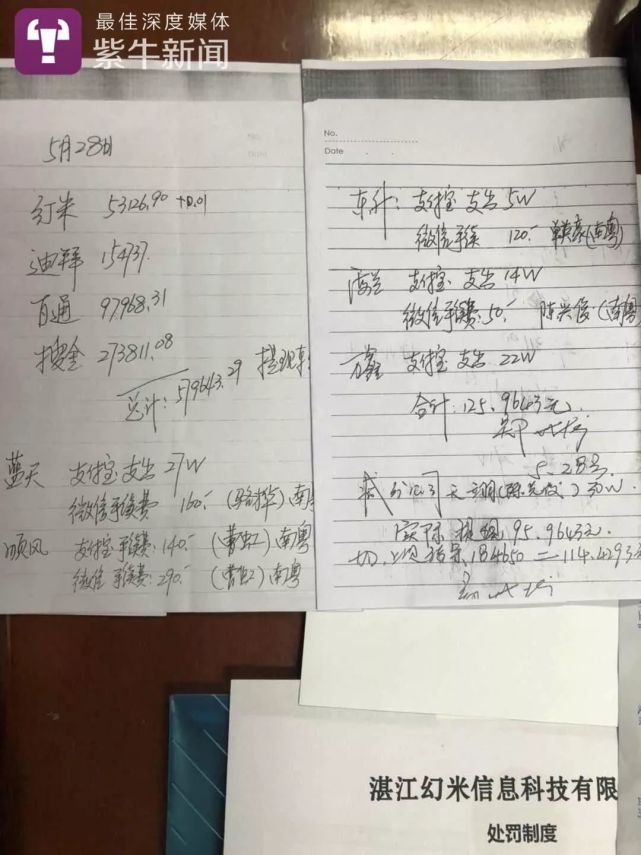 最佳深度媒体
紫牛新闻
5月28日
红米 53126.90 +0.01
迪祥 154737.
百通 97968.31
搜金 273811.08
总计: 579643.29 提现
蓝天 支付宝支出27W
微信手续费 160.- 南
顺风 支付宝手续费:140.- (曹虹) 南粤
微信手续费:290.- (曹虹) 南粤
No.
Date
东升: 支付宝支出5W
微信手续 120.- (南粤)
支付宝 支出14W
微信手续费:50.- 陈兴俊 (南粤
鑫 支付宝 支出22W
合计:125.9643元.
5.28号
分公司 30W.
实际提现95.9643元.
184650 = 114.4293
湛江幻米信息科技有限
处罚制度